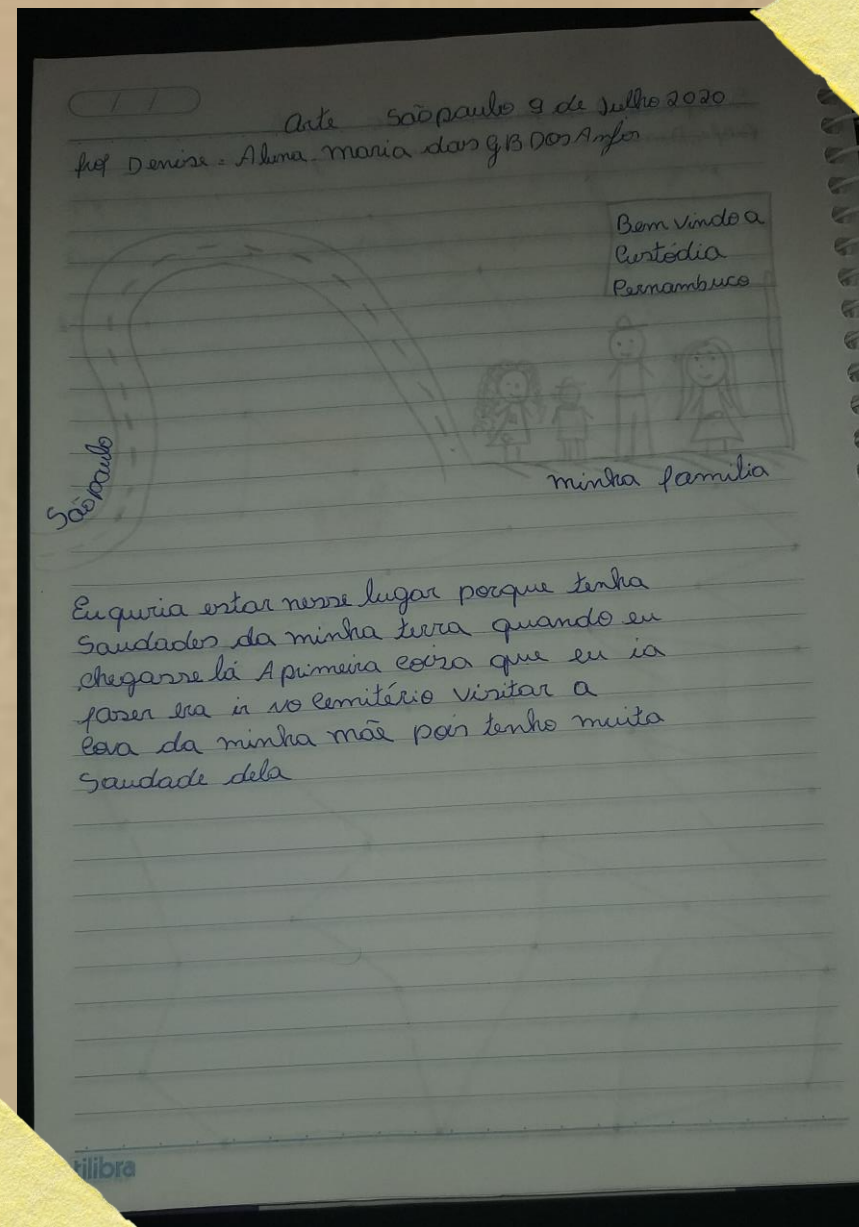 Arte São paulo 9 de Julho 2020
Prof Denise = Aluna maria das gB Dos Anjos
Bem vindo a
Custódia
Pernambuco
São paulo
minha familia
Eu quria estar nesse lugar porque tenha
Saudades da minha terra quando eu
chegasse lá A primeira coisa que eu ia
faser era ir no cemitério visitar a
cova da minha mãe pois tenho muita
Saudade dela
tilibra